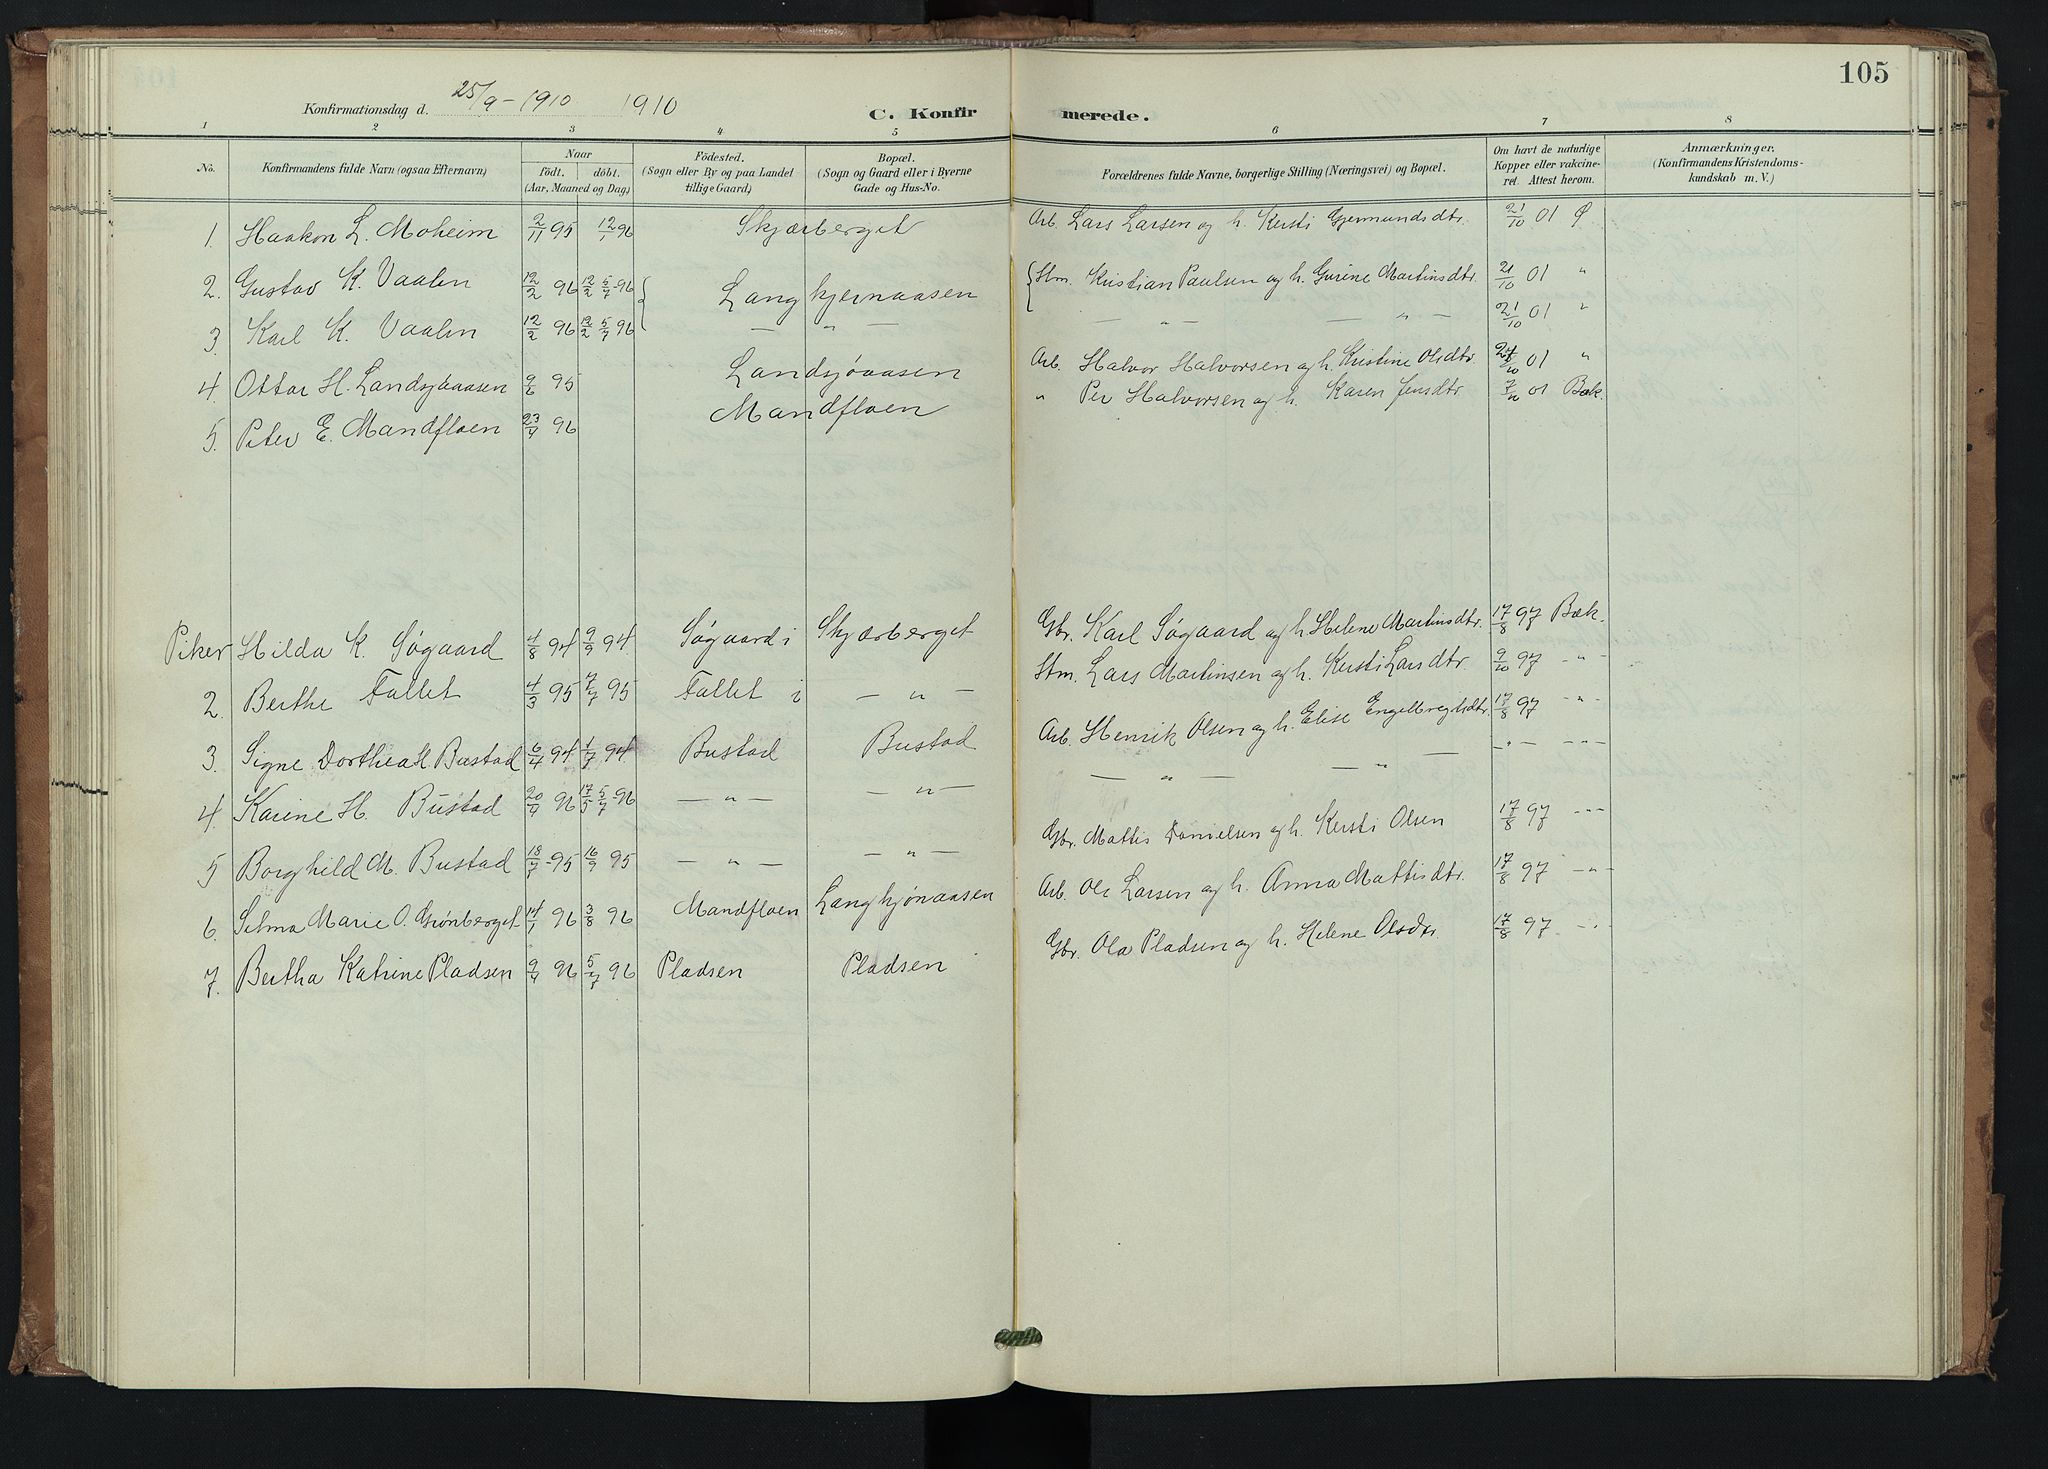 105
Konfirmationsdag d. 25/9 - 1910 1910 C. Konfirmerede.
1 2 3 4 5 6 7 8
No. Konfirmandens fulde Navn (ogsaa Efternavn) Naar födt. döbt. (Aar, Maaned og Dag) Födested. (Sogn eller By og paa Landet tillige Gaard) Bopæl. (Sogn og Gaard eller i Byerne Gade og Hus-No. Forældrenes fulde Navne, borgerlige Stilling (Næringsvei) og Bopæl. Om havt de naturlige Kopper eller vakcineret. Attest herom. Anmærkninger. (Konfirmandens Kristendomskundskab m. V.)
1. Haakon L. Moheim 2/11 95 12/1 96 Skjærberget Arb. Lars Larsen og h. Kersti Gjermundsdtr. 21/10 01 Ø
2. Gustav K. Vaalen 12/2 96 12/2 5/7 96 Langkjernaasen Stm. Kristian Paulsen og h. Gurine Martinsdtr. 21/10 01 "
3. Karl K. Vaalen 12/2 96 12/2 5/7 96 — " — — " — — " — 21/10 01 "
4. Ottar H. Landsjøaasen 9/6 95 Landsjøaasen Arb. Halvor Halvorsen og h. Kristine Olsdtr. 01 "
5. Peter E. Mandfloen 23/4 96 Mandfloen " Per Halvorsen og h. Karen Jensdtr. 01 Bæk.
Piker Hilda K. Søgaard 4/8 94 9/9 94 Søgaard i Skjærberget Gbr. Karl Søgaard og h. Helene Martinsdtr. 17/8 97 Bæk.
2. Berthe Fallet 4/3 95 7/7 95 Fallet i — " — Stm. Lars Martinsen og h. Kersti Larsdtr. 9/10 97 - " -
3. Signe Dorthea H Bustad 6/4 94 1/7 94 Bustad Bustad Arb. Henrik Olsen og h. Elise Engelbregtsdtr. 17/8 97 - " -
4. Karine H. Bustad 20/4 96 17/5 5/7 96 — " — — " — — " — — " — — - " - - " -
5 Borghild M. Bustad 18/7 - 95 16/9 95 — " — — " — Gbr. Mattis Danielsen og h. Kersti Olsen 17/8 97 - " -
6. Selma Marie O. Grønberget 14/1 96 3/8 96 Mandfloen Langkjønaasen Arb. Ole Larsen og h. Anna Mattisdtr. 17/8 97 - " -
7. Bertha Katrine Pladsen 9/4 96 5/7 96 Pladsen Pladsen Gbr. Ola Pladsen og h. Helene Olsdtr. 17/8 97 - " -